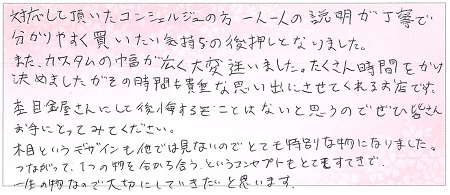 対応して頂いたコンシェルジュの方 一人一人の説明が丁寧で
分かりやすく買いたい気持ちの後押しとなりました。
また、カスタムの幅が広く大変迷いました。たくさん時間をかけ
決めましたがその時間も貴重な思い出にさせてくれるお店です。
杢目金屋さんにして後悔することはないと思うのでぜひ皆さん
お手にとってみてください。
木目というデザインも他では見ないのでとても特別な物になりました。
つながって、1つの物を分かち合う、というコンセプトもとてもすてきで、
一生の物なので大切にしていきたいと思います。